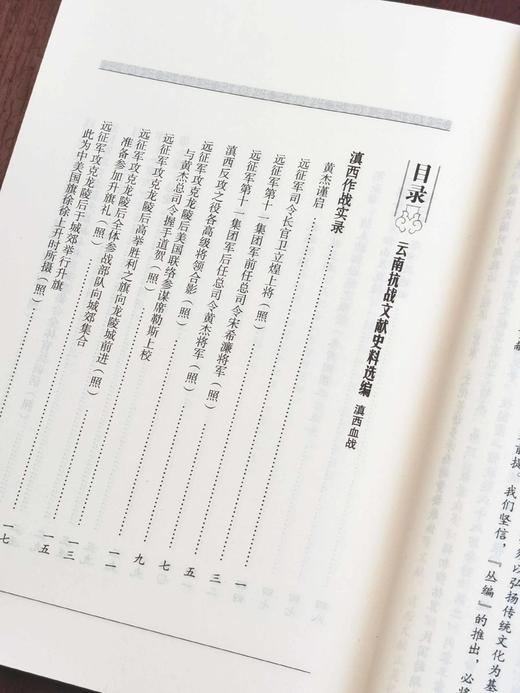 以弘扬传统文化为基
前提。我们坚信，『丛编』的推出，必将
目录 云南抗战文献史料选编 滇西血战
滇西作战实录
黄杰谨启 一
远征军司令长官卫立煌上将（照） 三
远征军第十一集团军前任总司令宋希濂将军（照） 五
远征军第十一集团军后任总司令黄杰将军（照） 七
滇西反攻之役各高级将领合影（照） 九
远征军攻克龙陵后美国联络参谋席勒斯上校
与黄杰总司令握手道贺（照） 一一
远征军攻克龙陵后高举胜利之旗向龙陵城前进（照） 一三
远征军攻克龙陵后全体参战部队向城郊集合
准备参加升旗礼（照） 一五
远征军攻克龙陵后于城郊举行升旗
此为中美国旗徐徐上升时所摄（照） 一七